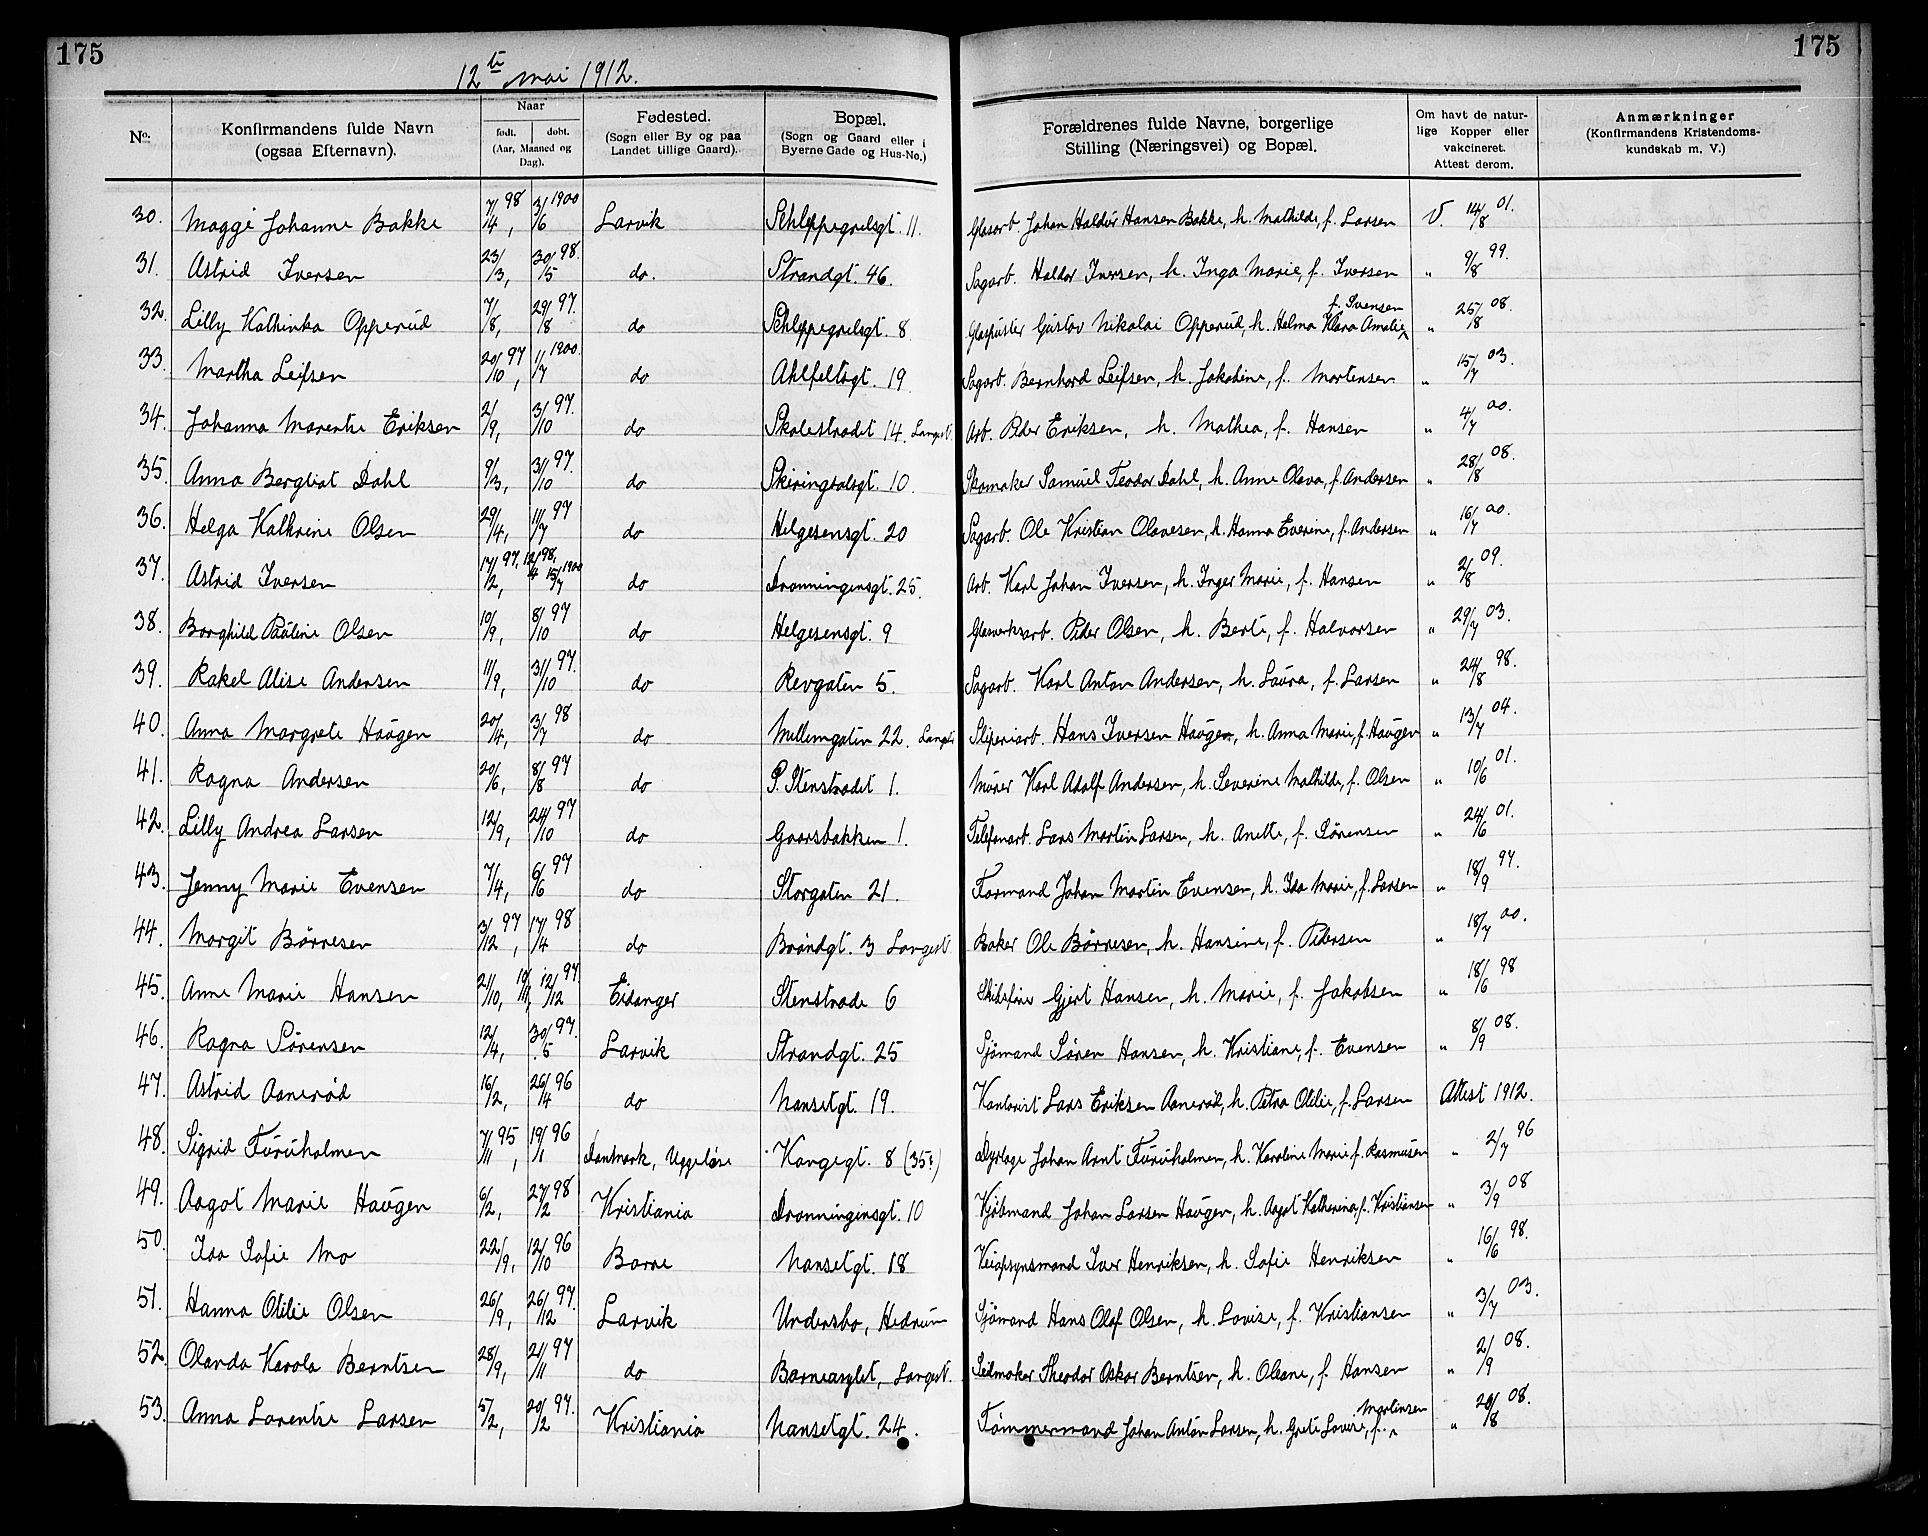 175
175
12te mai 1912.
No.
Konfirmandens fulde Navn (ogsaa Efternavn).
Naar
født. døbt.
(Aar, Maaned og Dag).
Fødested.
(Sogn eller By og paa Landet tillige Gaard).
Bopæl.
(Sogn og Gaard eller i Byerne Gade og Hus-No.)
Forældrenes fulde Navne, borgerlige Stilling (Næringsvei) og Bopæl.
Om havt de naturlige Kopper eller vakcineret. Attest derom.
Anmærkninger
(Konfirmandens Kristendomskundskab m. V.)
30. Maggi Johanne Bakke 7/4 98, 3/6 1900 Larvik Schleppegrelsgt. 11. Glasarb. Johan Haldor Hansen Bakke, h. Mathilde, f. Larsen V. 14/8 01.
31. Astrid Iversen 23/3, 30/5 98. do. Strandgt. 46. Sagarb. Haldor Iversen, h. Inga Marie, f. Iversen " 9/8 99.
32. Lilly Kathinka Opperud 7/8, 29/8 97. do Schleppegrelsgt. 8 Glaspuster Gustav Nikolai Opperud, h. Helma Klara Amalie, f. Svensen " 25/8 08.
33. Martha Leifsen 20/10 97, 1/7 1900. do Ahlfeltsgt. 19 Sagarb. Bernhard Leifsen, h. Jakobine, f. Mortensen " 15/7 03.
34. Johanna Marentse Eriksen 2/9, 3/10 97. do Skolestrædet 14. Langest. Arb. Peder Eriksen, h. Mathea, f. Hansen " 4/7 00.
35. Anna Bergliot Dahl 9/3, 31/10 97. do Skiringsalsgt. 10. Skomaker Samuel Teodor Dahl, h. Anne Olava, f. Andersen " 28/8 08.
36. Helga Kathrine Olsen 29/4, 11/7 97 do Helgesensgt. 20 Sagarb. Ole Kristian Olavesen, h. Hanna Everine, f. Andersen " 16/7 00.
37. Astrid Iversen 17/2 97, 12/4 98, 15/7 1900 do Dronningensgt. 25. Arb. Karl Johan Iversen, h. Inger Marie, f. Hansen " 2/8 09.
38. Borghild Pauline Olsen 10/9, 8/10 97 do Helgesensgt. 9 Glasverksarb. Peder Olsen, h. Berte, f. Halvorsen " 29/7 03.
39. Rakel Alise Andersen 11/9, 31/10 97. do Revgaten 5. Sagarb. Karl Anton Andersen, h. Laura, f. Larsen " 24/8 98.
40. Anna Margrete Haugen 20/4, 3/7 98 do Mellemgaten 22. Langest Sliperiarb. Hans Iversen Haugen, h. Anna Marie, f. Haugen " 13/7 04.
41. Ragna Andersen 20/6, 8/8 97 do P. Stenstrædet 1. Murer Karl Adolf Andersen, h. Severine Mathilde, f. Olsen " 10/6 01.
42. Lilly Andrea Larsen 12/9, 24/10 97 do Gaarsbakken 1. Telefonarb. Lars Martin Larsen, h. Anette, f. Sørensen " 24/6 01.
43. Jenny Marie Evensen 7/4, 6/6 97 do Storgaten 21. Formand Johan Martin Evensen, h. Ida Marie, f. Larsen " 18/9 97.
44. Margit Børresen 3/12 97, 17/4 98 do Brøndgt. 3 Langest. Baker Ole Børresen, h. Hansine, f. Pedersen " 18/7 00.
45. Anne Marie Hansen 21/10, 10/11, 12/12 97. Eidanger Stenstræde 6 Skibsfører Gjert Hansen, h. Marie, f. Jakobsen " 18/6 98
46. Ragna Sørensen 12/4, 30/5 97. Larvik Strandgt. 25 Sjømand Søren Hansen, h. Kristiane, f. Evensen " 8/9 08.
47. Astrid Aanerød 16/2, 26/4 96 do Nansetgt. 19. Kantorist Lars Eriksen Aanerød, h. Petra Otilie, f. Larsen Attest 1912.
48. Sigrid Furuholmen 7/11 95, 19/1 96 Danmark, Uggeløse Kongegt. 8 (35?) Dyrlæge Johan Arnt Furuholmen, h. Karoline Marie f. Rasmusen " 2/7 96
49. Aagot Marie Haugen 6/2, 27/2 98 Kristiania Dronningensgt. 10 Kjøbmand Johan Larsen Haugen, h. Aagot Katherina, f. Kristiansen " 3/9 08
50. Ida Sofie Mo 22/9, 12/10 96 Borre Nansetgt. 18 Veiopsynsmand Iver Henriksen, h. Sofie Henriksen " 16/6 98.
51. Hanna Otilie Olsen 26/9, 26/12 97. Larvik Undersbo, Hedrum Sjømand Hans Olaf Olsen, h. Lovise, f. Kristiansen " 3/7 03.
52. Olanda Karola Berntsen 28/9, 21/11 97 do Barneasylet, Langest. Seilmaker Theodor Oskar Berntsen, h. Oleane, f. Hansen " 2/9 08.
53. Anna Larentse Larsen 5/2, 20/2 97. Kristiania Nansetgt. 24. Tømmermand Johan Anton Larsen, h. Grete Lovise, f. Martinsen " 20/8 08.